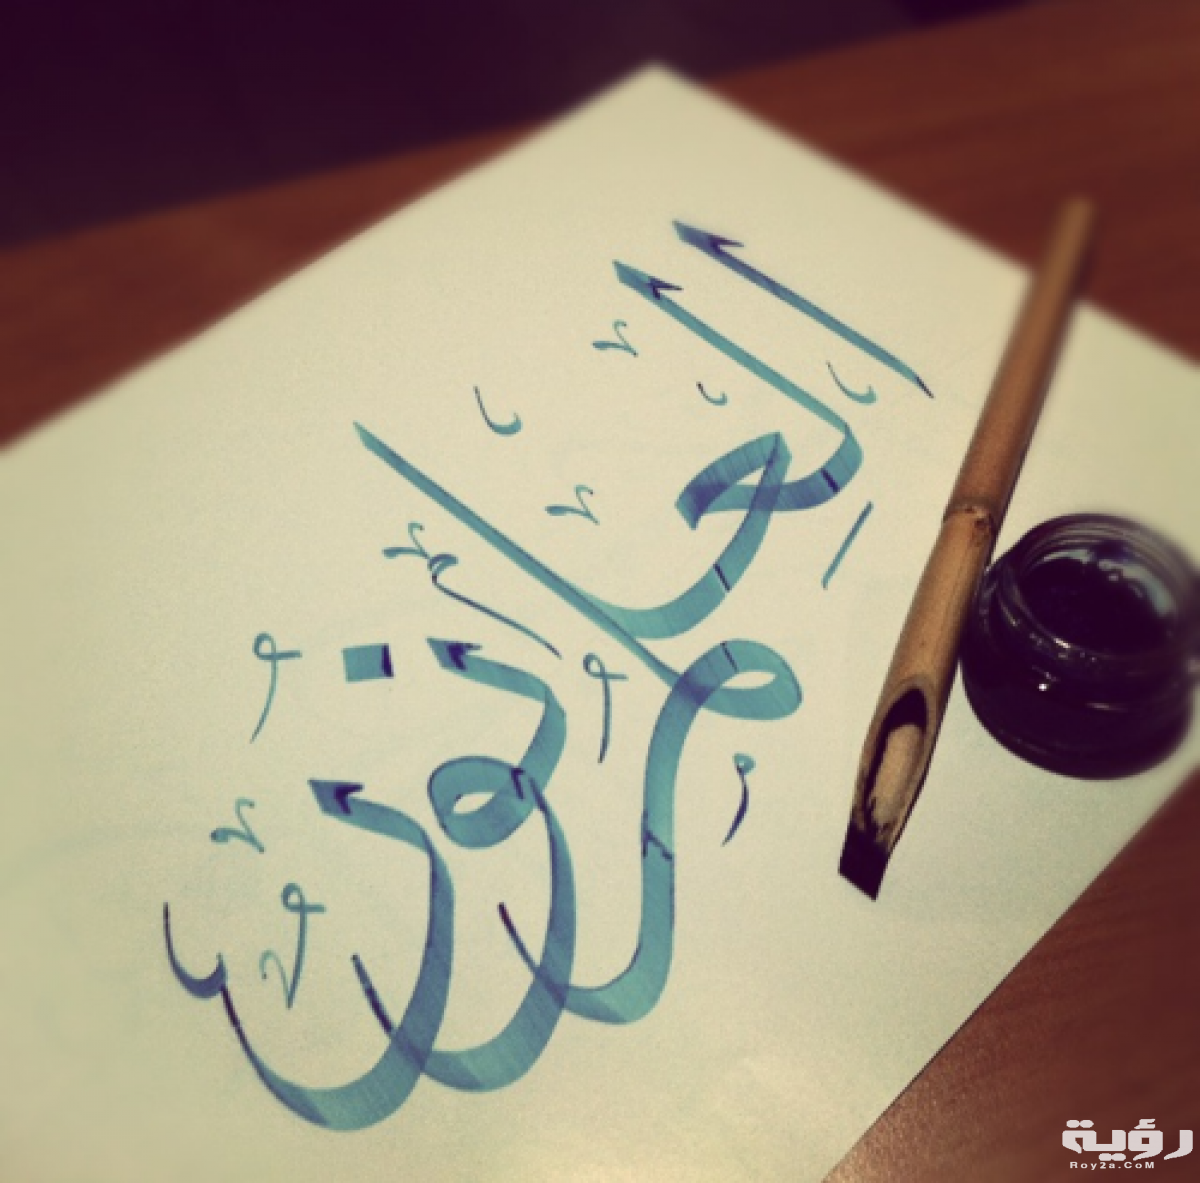 العِلمُ نُورٌ
رؤية
Roy2a.CoM